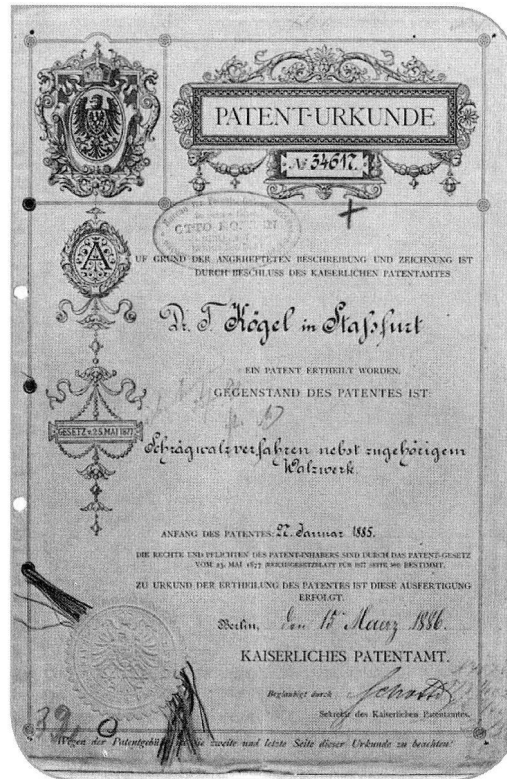 PATENT-URKUNDE
№ 34617.
A
UF GRUND DER ANGEHEFTETEN BESCHREIBUNG UND ZEICHNUNG IST
DURCH BESCHLUSS DES KAISERLICHEN PATENTAMTES
Dr. F. Kögel in Staßfurt
EIN PATENT ERTHEILT WORDEN.
GEGENSTAND DES PATENTES IST:
GESETZ v. 25. MAI 1877
Schrägwalzverfahren nebst zugehörigem
Walzwerk.
ANFANG DES PATENTES: 27. Januar 1885.
DIE RECHTE UND PFLICHTEN DES PATENT-INHABERS SIND DURCH DAS PATENT-GESETZ
VOM 25. MAI 1877 (REICHSGESETZBLATT FÜR 1877 SEITE 501) BESTIMMT.
ZU URKUND DER ERTHEILUNG DES PATENTES IST DIESE AUSFERTIGUNG
ERFOLGT.
Berlin, den 15 Maerz 1886.
KAISERLICHES PATENTAMT.
Beglaubigt durch
Sekretär des Kaiserlichen Patentamtes.
39
Wegen der Patentgebühr die zweite und letzte Seite dieser Urkunde zu beachten!